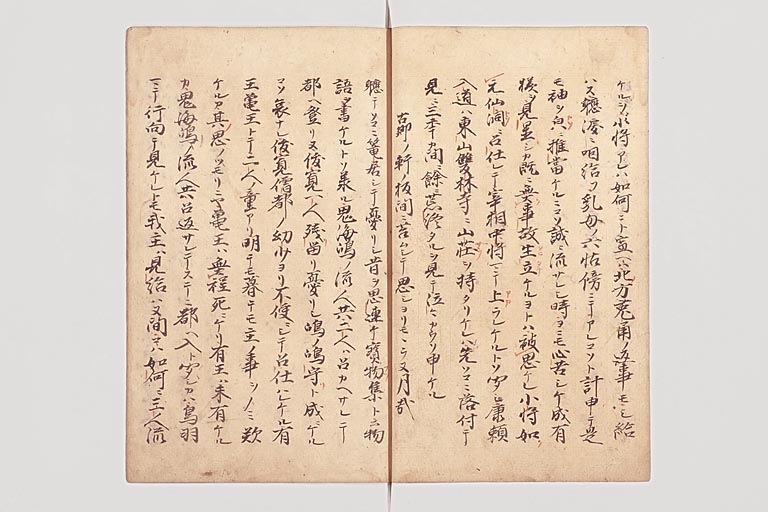 ケルヲ少将アレハ如何ニト宣ハ北方兎角ノ返事モシ給
ハス聴ニ咽給ヲ乳母ノ六帖傍ニテアレコソト計申テ是
モ袖ヲ推當ケルニコソ誠ニ流サレシ時ヨミモ心苦シケ成有
様ヲ見置シカ既ニ無事故生立ケルヨトハ被思ケレ小将如
元仙洞ニ召仕レテ宰相中将ニテ上ラレケルトソ聞ヘシ康頼
入道ハ東山雙林寺ニ山荘ヲ持タリケレハ先ソコニ落付テ
見ニ三年カ間ニ餘ニ荒終タルヲ見テ泣々カクソ申ケル
古郷ノ軒ノ板間ニ苔ムシテ思シヨリモモラヌ月哉
聴テソコニ篭居シテ憂リシ昔ヲ思連ケ寶物集ト云物
語ヲ書ケルトソ承ル鬼海嶋ノ流人共二人ハ召カヘサレテ
都ヘ登リヌ俊寛一人残留リ憂リシ嶋ノ嶋守ト成ニケル
コソ哀ナレ俊寛僧都ノ幼少ヨリ不便ニシテ召仕ハレケル有
王亀王トテ二人ノ童アリ明テモ暮テモ主ノ事ヲノミ歎
ケルカ其思ノツモリニヤ亀王ハ無程死ニケリ有王ハ未有ケル
カ鬼海嶋ノ流人共召返サレテステニ都ヘ入ト聞シカハ鳥羽
マテ行向テ見ケレトモ我主ハ見給ハヌ間コハ如何ニ三人流